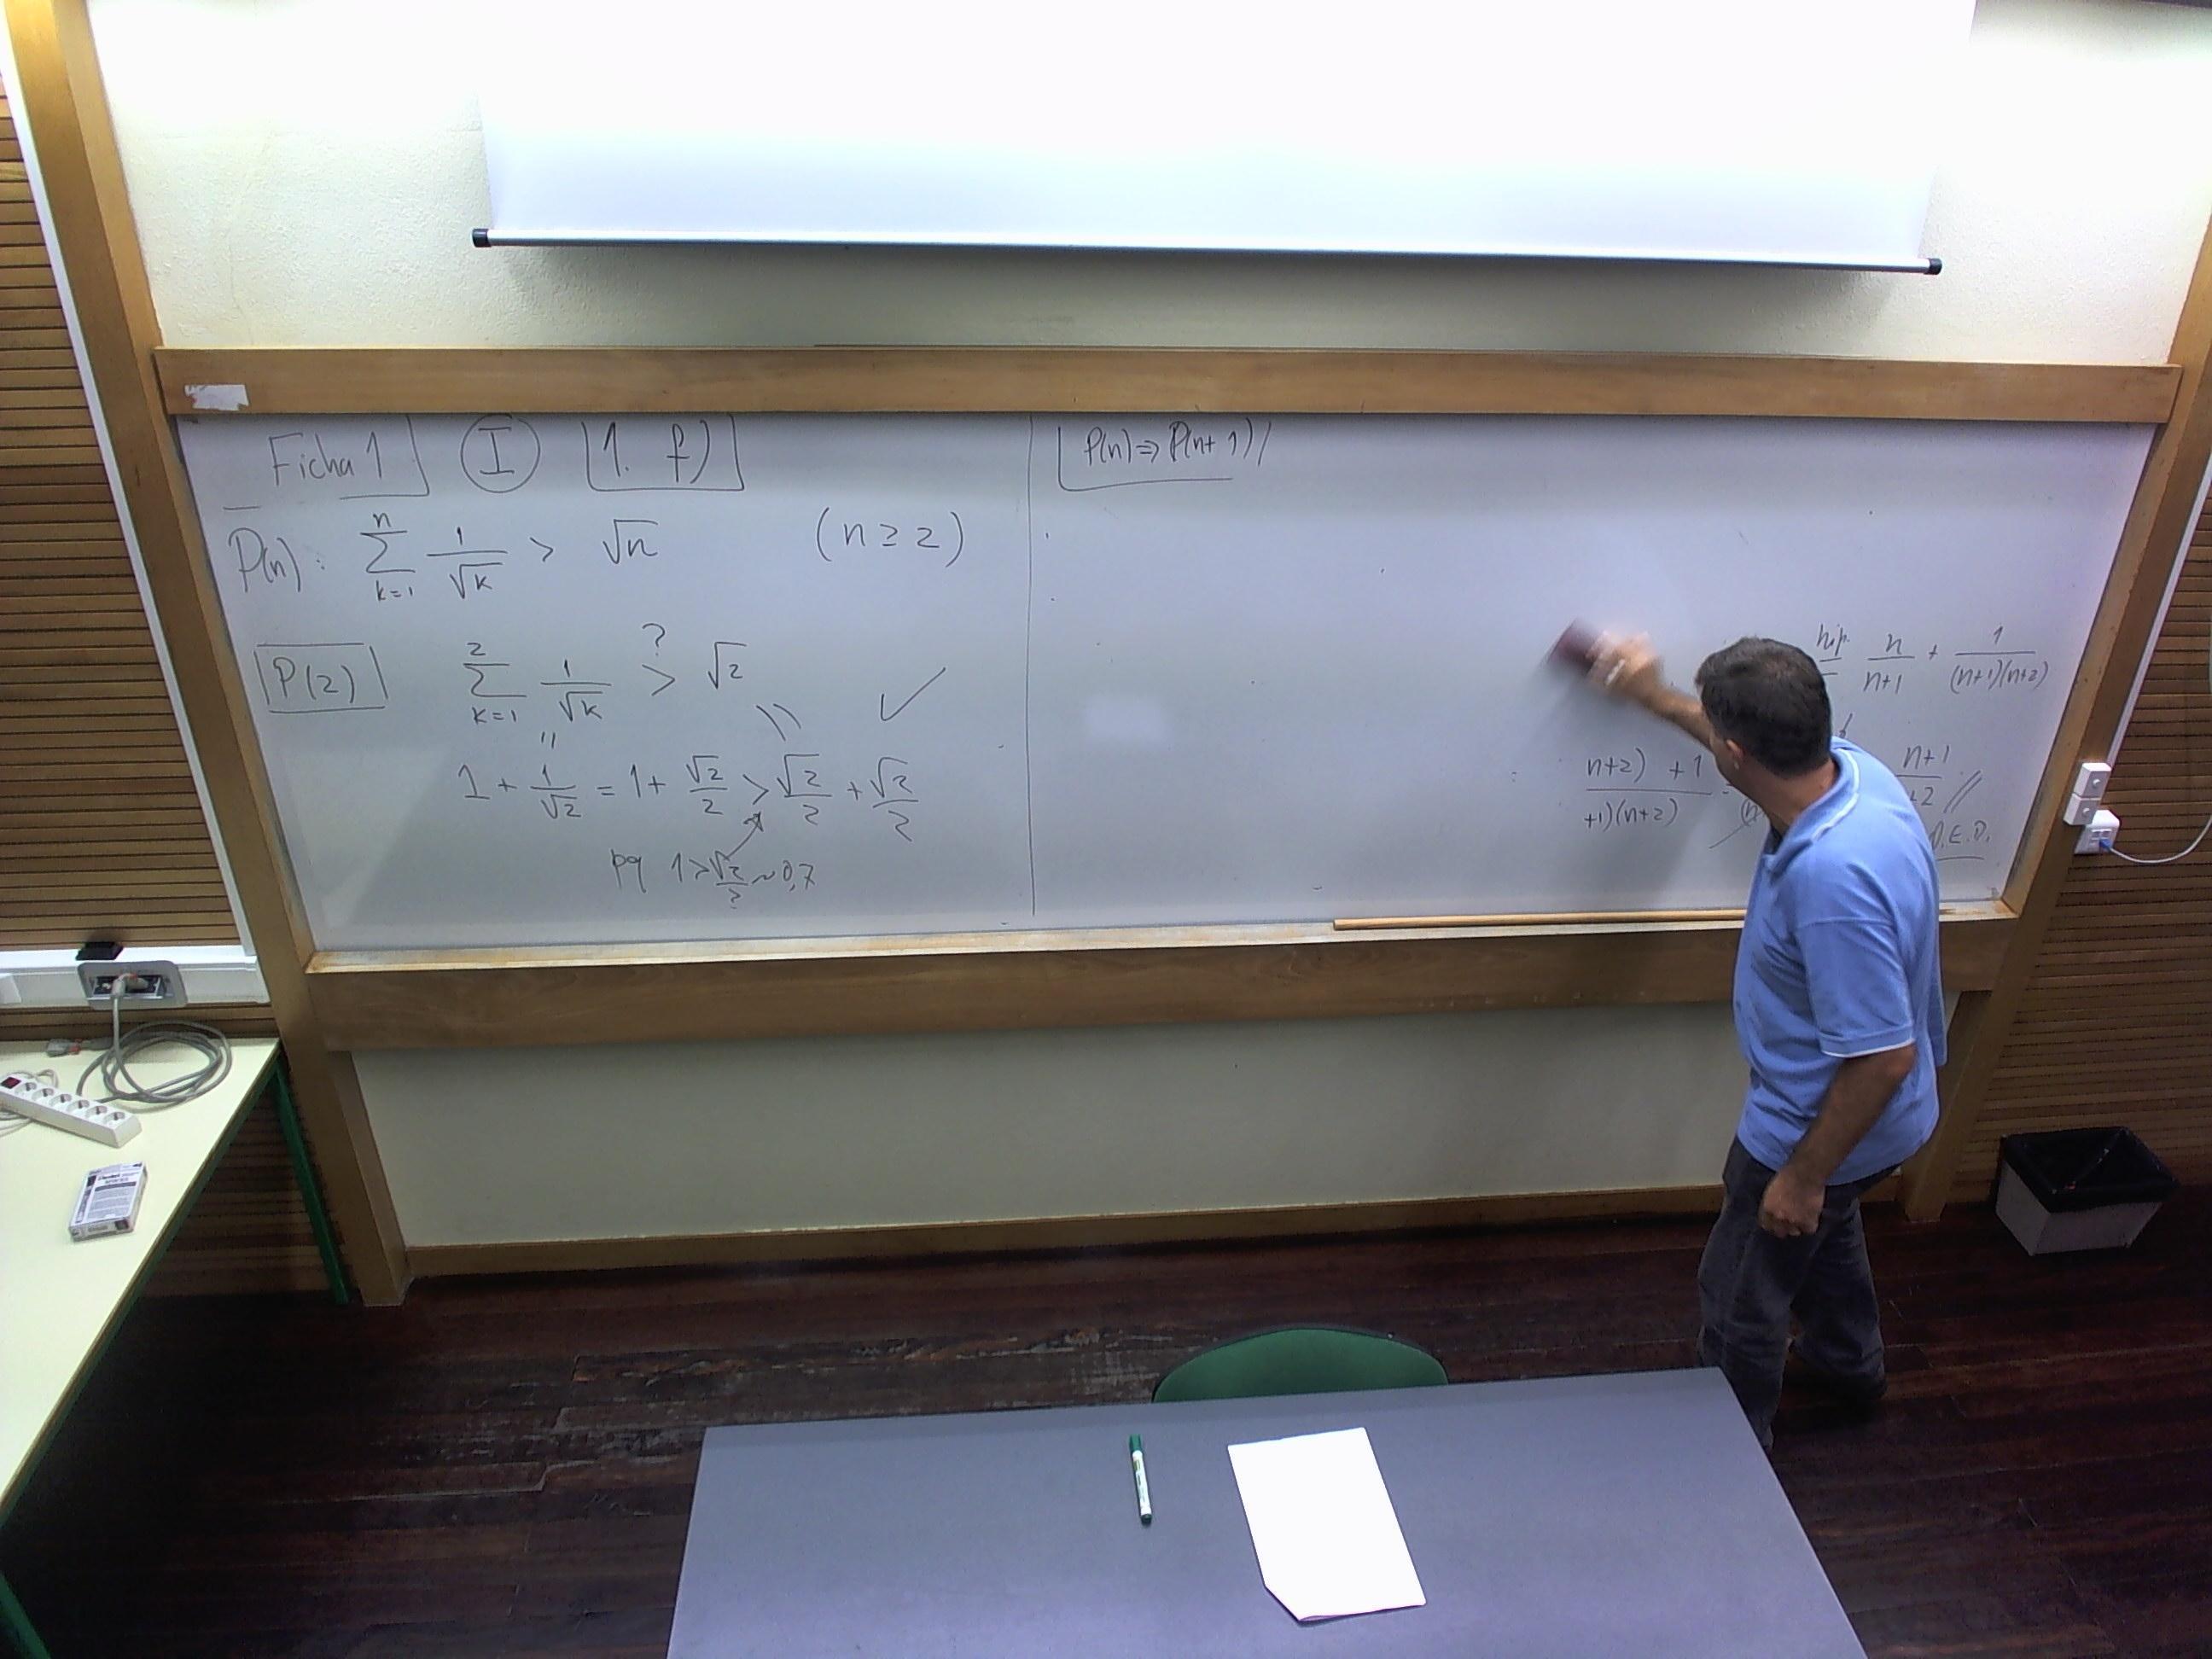 Ficha 1 I 1. f)
P(n): \sum_{k=1}^{n} \frac{1}{\sqrt{k}} > \sqrt{n} (n ≥ 2)
P(2) \sum_{k=1}^{2} \frac{1}{\sqrt{k}} \overset{?}{>} \sqrt{2} ✓
1 + \frac{1}{\sqrt{2}} = 1 + \frac{\sqrt{2}}{2} > \frac{\sqrt{2}}{2} + \frac{\sqrt{2}}{2}
pq 1 > \frac{\sqrt{2}}{2} ~ 0,7
P(n) ⇒ P(n+1)
hip. \frac{n}{n+1} + \frac{1}{(n+1)(n+2)}
\frac{n+2) +1}{+1)(n+2)} \frac{n+1}{+2} //
Q.E.D.